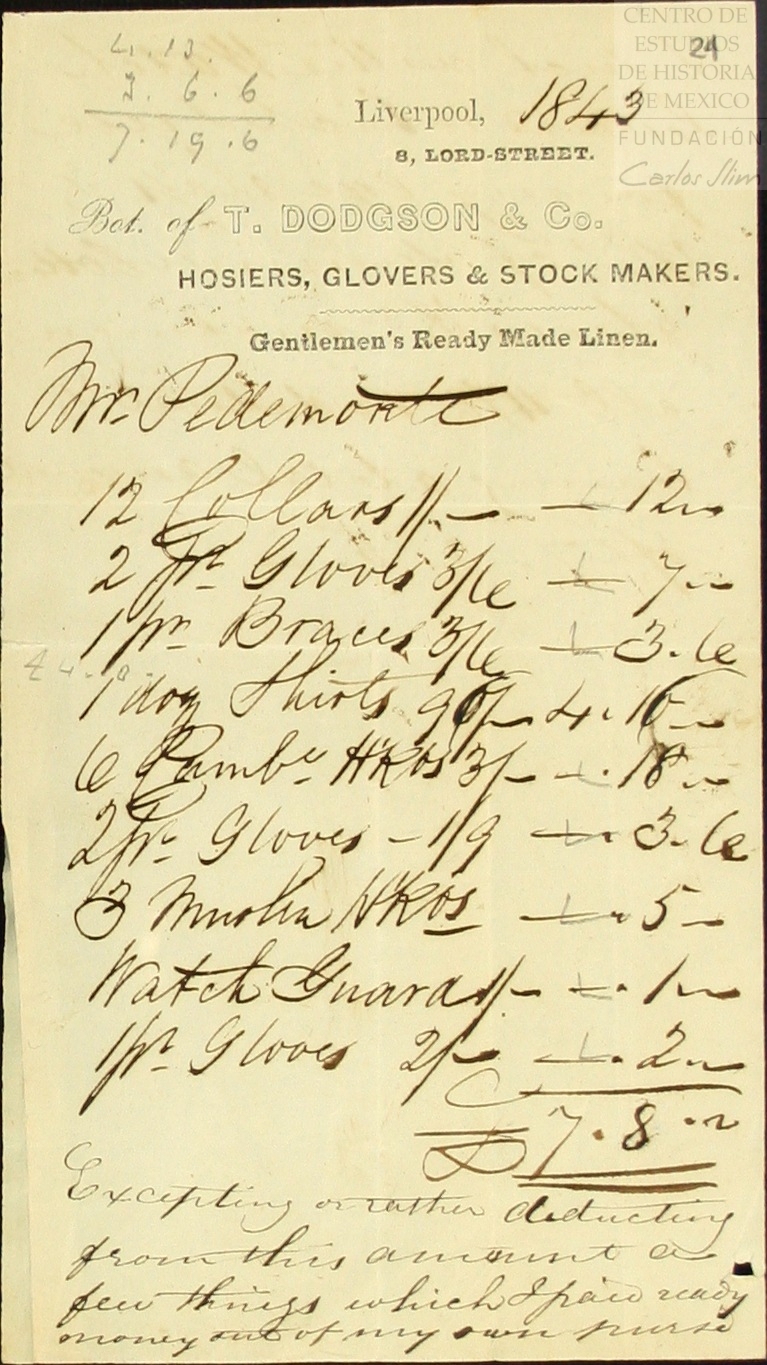 CENTRO DE
ESTUDIOS
DE HISTORIA
DE MEXICO
FUNDACIÓN
Carlos Slim
4.13.
3.6.6
7.19.6
Liverpool, 1843
8, LORD-STREET.
Bot. of T. DODGSON & Co.
HOSIERS, GLOVERS & STOCK MAKERS.
Gentlemen's Ready Made Linen.
Mr. Pedemonte
12 Collars 1/- - 12 "
2 pr. Gloves 3/6 - 7 - -
1 pr Braces 3/6 - 3. 6
1 doz Shirts 90/- 4. 10 -
6 Camb. Hkfs 3/- - . 18 . -
2 pr. Gloves - 1/9 - 3. 6
3 Muslin Hkfs - " 5 -
Watch Guard 1/- - . 1 -
1 pr. Gloves 2/- - . 2 -
£ 7. 8. "
Excepting or rather deducting
from this amount a
few things which I paid ready
money out of my own purse